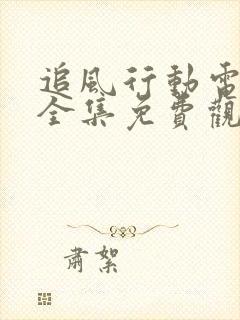 追風行動電
全集免費觀
肅絮